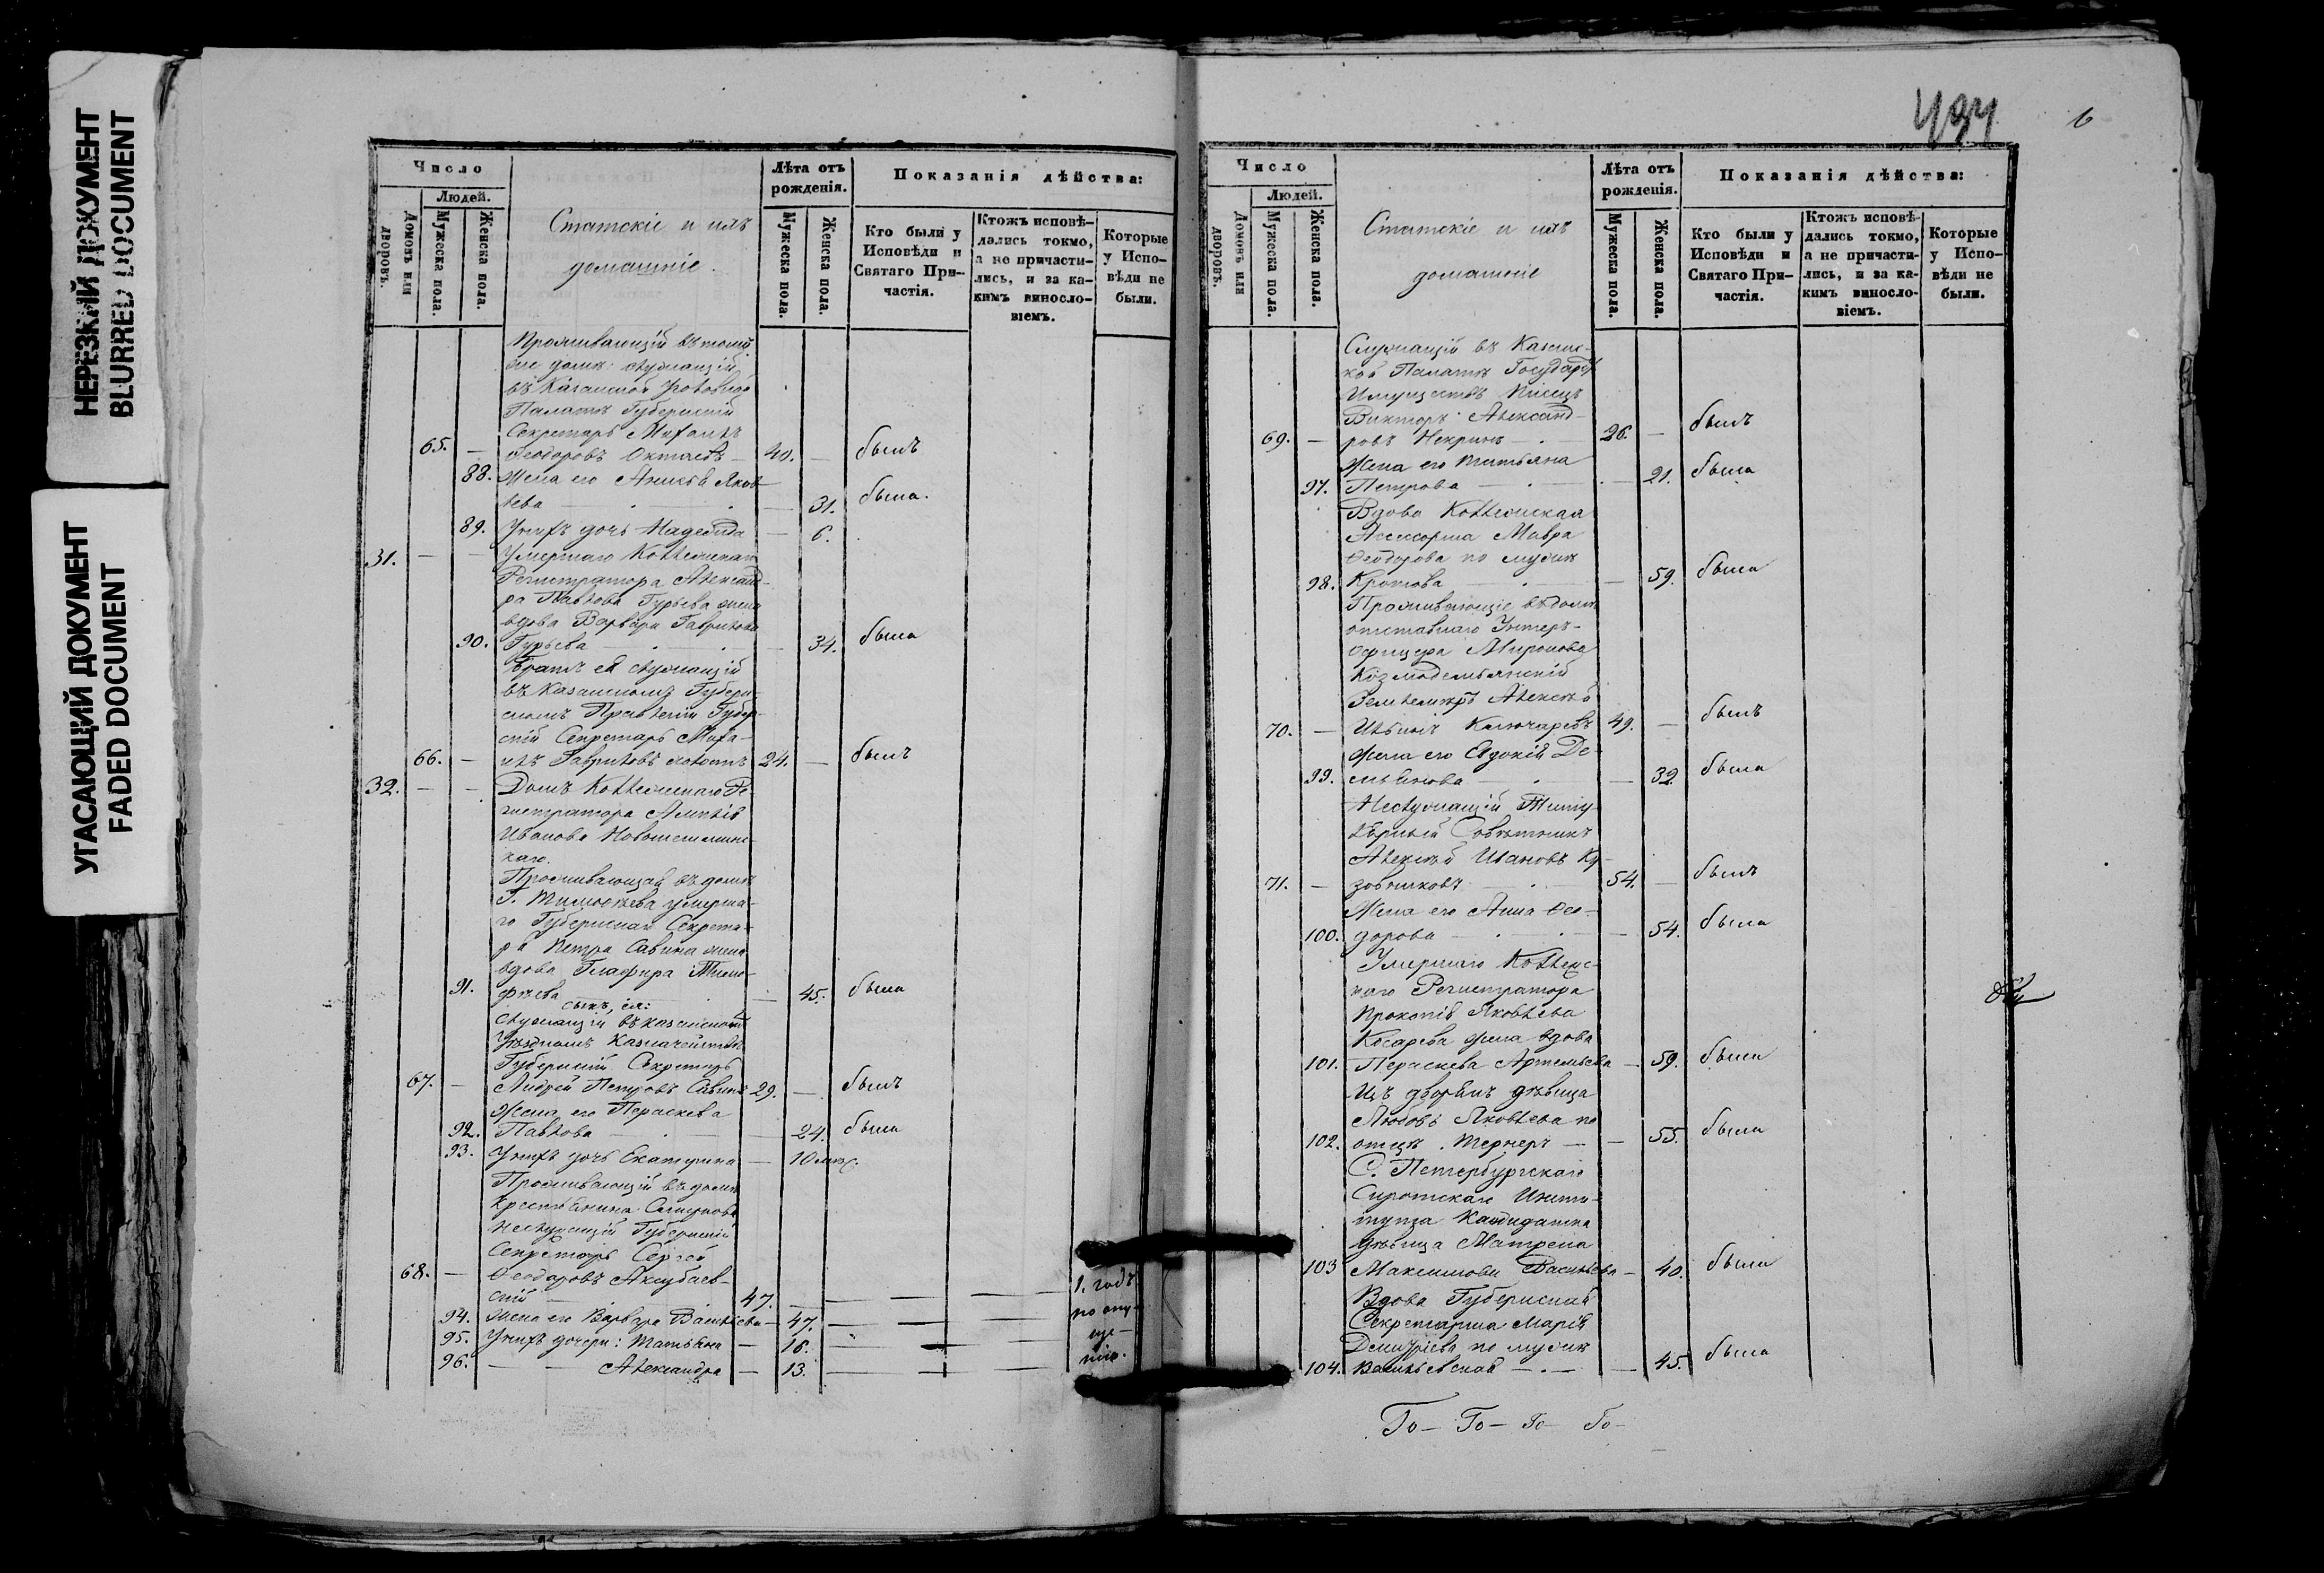 НЕРЕЗКИЙ ДОКУМЕНТ
BLURRED DOCUMENT
УГАСАЮЩИЙ ДОКУМЕНТ
FADED DOCUMENT
Число
Людей.
Домовъ или дворовъ.
Мужеска пола.
Женска пола.
Статскіе и ихъ
домашніе.
Лѣта отъ рожденія.
Мужеска пола.
Женска пола.
Показанія дѣйства:
Кто были у Исповѣди и Святаго Причастія.
Ктожъ исповѣдались токмо, а не причастились, и за какимъ винословіемъ.
Которые у Исповѣди не были.
Проживающій въ томъ
же домѣ служащій
въ Казанской
Палатѣ Губернскій
Секретарь
65. — Ѳеодоровъ — 40. — былъ
88. Жена его Яков-
лева — 31. была.
89. У нихъ дочь Надежда — 6.
31. — — Умершаго Коллежскаго
Регистратора Александ-
ра Павлова Гурьева жена
вдова Варвара Гаврилова
90. Гурьева — 34. была
Братъ ея служащій
въ Казанскомъ Губерн-
скомъ Правленіи Губерн-
скій Секретарь Миха-
66. — илъ Гавриловъ 24. — былъ
32. — — Домъ Коллежскаго Ре-
гистратора
Иванова Новошешминс-
каго.
Проживающая въ домѣ
Г. Тимоѳеева умерша-
го Губернскаго Секрета-
ря Петра Савина жена
вдова Глафира Тимо-
91. фѣева — 45. была
сынъ ея:
служащій въ Казанскомъ
Уѣздномъ Казначействѣ
Губернскій Секретарь
67. — Андрей Петровъ Савинъ 29. — былъ
Жена его Параскева
92. Павлова — 24. была
93. У нихъ дочь Екатерина — 10 мѣс.
Проживающій въ домѣ
крестьянина Смирнова
неслужащій Губернскій
Секретарь Сергей
68. — Ѳеодоровъ Аксубаев-
скій 47. — 1. годъ
94. Жена его Варвара Васильева — 47. — по опу-
95. У нихъ дочери: Татьяна — 16. — ще-
96. — — Александра — 13. — нію.
6
Число
Людей.
Домовъ или дворовъ.
Мужеска пола.
Женска пола.
Статскіе и ихъ
домашніе
Лѣта отъ рожденія.
Мужеска пола.
Женска пола.
Показанія дѣйства:
Кто были у Исповѣди и Святаго Причастія.
Ктожъ исповѣдались токмо, а не причастились, и за какимъ винословіемъ.
Которые у Исповѣди не были.
Служащій въ Казанс-
кой Палатѣ Государ.
Имуществъ Писецъ
Викторъ Александ-
69. — ровъ Некринъ — 26. — былъ
Жена его Татьяна
97. Петрова — 21. была
Вдова Коллежская
Асессорша Мавра
Ѳеодорова по мужѣ
98. Кротова — 59. была
Проживающіе въ домѣ
отставнаго Унтеръ-
офицера Миронова
Козмодемьянскій
Землемѣръ Алексѣй
70. — Ключаревъ 49. — былъ
Жена его Евдокія Де-
99. мьянова — 32. была
Неслужащій Титу-
лярный Совѣтникъ
Алексѣй Ивановъ Ку-
71. — зовниковъ — 54. — былъ
Жена его Анна Ѳео-
100. дорова — 54. была
Умершаго Коллежс-
каго Регистратора
Прокопія Яковлева
Косарева жена вдова
101. Параскева Артемьева — 59. была
Изъ дворянъ дѣвица
Любовь Яковлева по
102. отцѣ Тернеръ — — 55. была
С. Петербургскаго
Сиротскаго Инсти-
тута Кандидатка
дѣвица Матрена
103 Максимова Васильева — 40. была
Вдова Губернская
Секретарша Марія
Димитріева по мужѣ
104. Васильевская — 45. была
То — То — То — То —